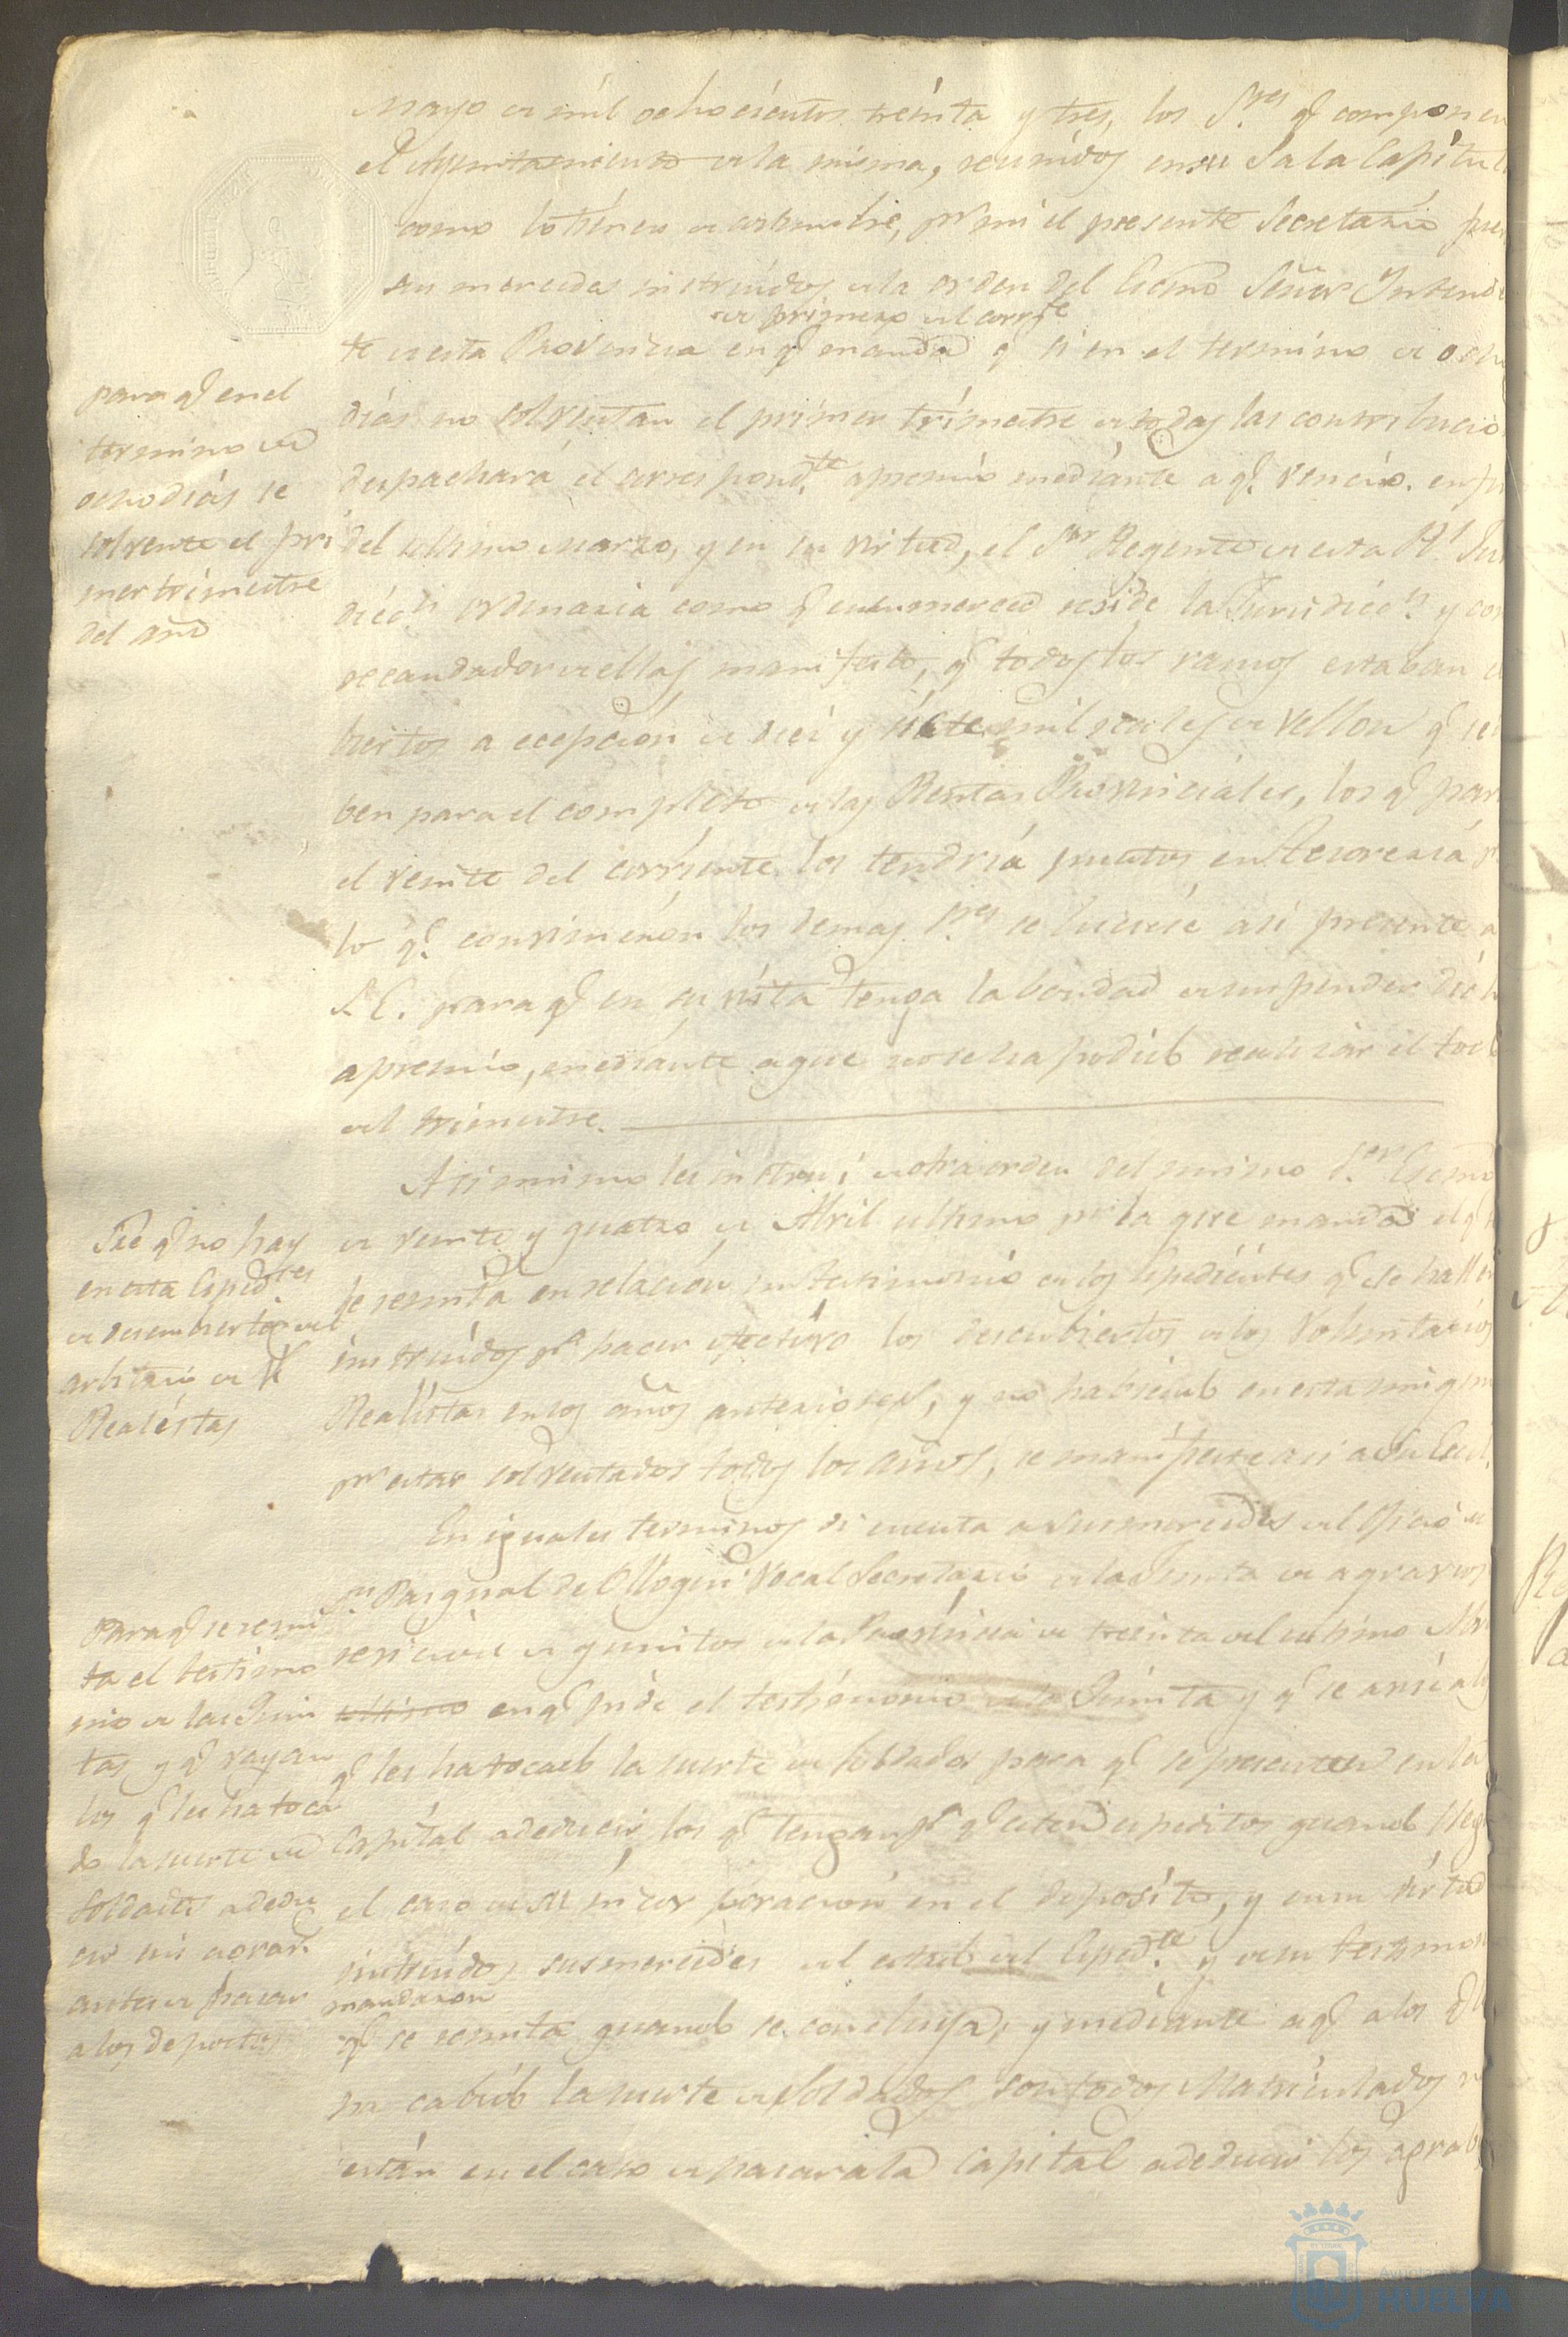 Mayo de mil ochocientos treinta y tres, los S.res q.e componen
el Ayuntamiento de la misma, reunidos en su Sala Capitul
como lo tienen de costumbre, p.r mi el presente Secretario fuer
sus mercedes instruidos de la orden del Escmo Señor Intend
de primero del corr.te
te de esta Provincia en q.e manda q.e si en el termino de ocho
dias no solventan el primer trimestre de todas las contribucio
despachará el correspond.te apremio mediante a q.e vencio en fin
del ultimo Marzo, y en su virtud, el S.or Regente de esta R.l Juris
dicc.n ordenaria como q.e en su merced reside la Jurisdicc.n y co
recaudador de ellas manifesto, q.e todos los ramos estaban cu
biertos a ecepcion de diez y siete mil reales de vellon q.e se de
ben para el completo de las Rentas Provinciales, los q.e para
el veinte del corriente los tendria puestos en Tesoreria p.r
lo q.e convinieron los demas S.res se hiciese asi presente a
S.E. para q.e en su vista tenga la bondad de suspender dicho
apremio, mediante a que no se ha podido realizar el todo
del trimestre.
Asi mismo les instrui de otra orden del mismo S.or Escmo
de veinte y quatro de Abril ultimo p.r la que manda el q.e
se remita en relacion un testimonio de los Espedientes q.e se hallen
instruidos p.a hacer efectivo los descubiertos de los Voluntarios
Realistas en los años anteriores, y no habiendo en esta ninguno
p.r estar solventados todos los años, se manifieste asi a Su Escl.
En iguales terminos di cuenta a sus mercedes del oficio de
D.n Pasqual de Vocal Secretario de la Junta de agravios
de quintos de la Provincia de treinta del ultimo Abr
ultimo en q.e pide el testimonio de la Quinta y q.e se avise a los
q.e les ha tocado la suerte de soldados para q.e se presenten en la
Capital a deducir los q.e tengan p.a q.e esten espeditos quando llegue
el caso de su incorporacion en el deposito, y en su virtud
instruidos sus mercedes del estado del Esped.te y de su testimon
mandaron
q.e se remita quando se concluya, y mediante a q.e a los q.e
ha cabido la suerte de Soldados son todos Matriculados no
están en el caso de pasar a la Capital a deducir los agrabi
para q.e en el
termino de
ocho dias se
solvente el pri
mer trimestre
del año
De q.e no hay
en esta Esped.tes
de descubiertos del
arbitrio de V.
Realistas
Para q.e se remi
ta el testimo
nio de las Quin
tas y q.e vayan
los q.e les ha toca
do la suerte de
Soldados a dedu
cir sus agrav.
antes de pasar
a los depositos
HUELVA